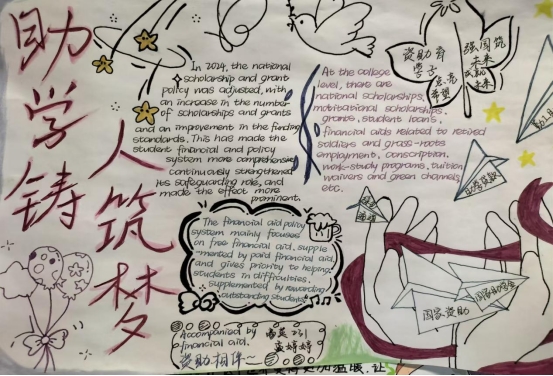 助学铸
人筑梦
In 2024, the national
scholarship and grant
policy was adjusted, with
an increase in the number
of scholarships and grants
and an improvement in the funding
standards. This has made the
student financial aid policy
system more comprehensive
continuously strengthened
its safeguarding role, and
made the effect more
prominent.
At the college
level, there are
national scholarships,
motivational scholarships,
grants, student loans,
financial aids related to retired
soldiers and grass-roots
employment, conscription,
work-study programs, tuition
waivers and green channels
etc.
资助育
学子
点亮
希望
强国筑
未来
成就
未来
The financial aid policy
system mainly focuses
on free financial aid, supple
-mented by paid financial aid,
and gives priority to helping
students in difficulties,
supplemented by rewarding
outstanding students.
Accompanied by
financial aid.
资助相伴
国家资助
国家助学金